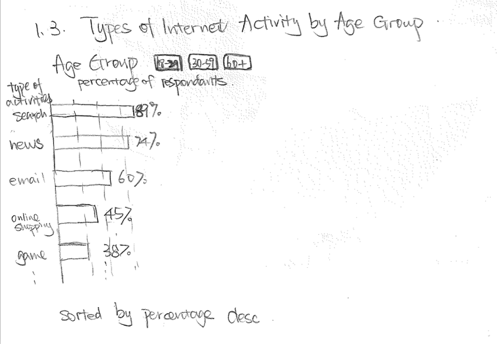 1.3. Types of Internet Activity by Age Group.
Age Group 18-29 30-59 60+
percentage of respondants
type of
activities
search 89%
news 74%
email 60%
online
shopping 45%
game 38%
sorted by percentage desc.